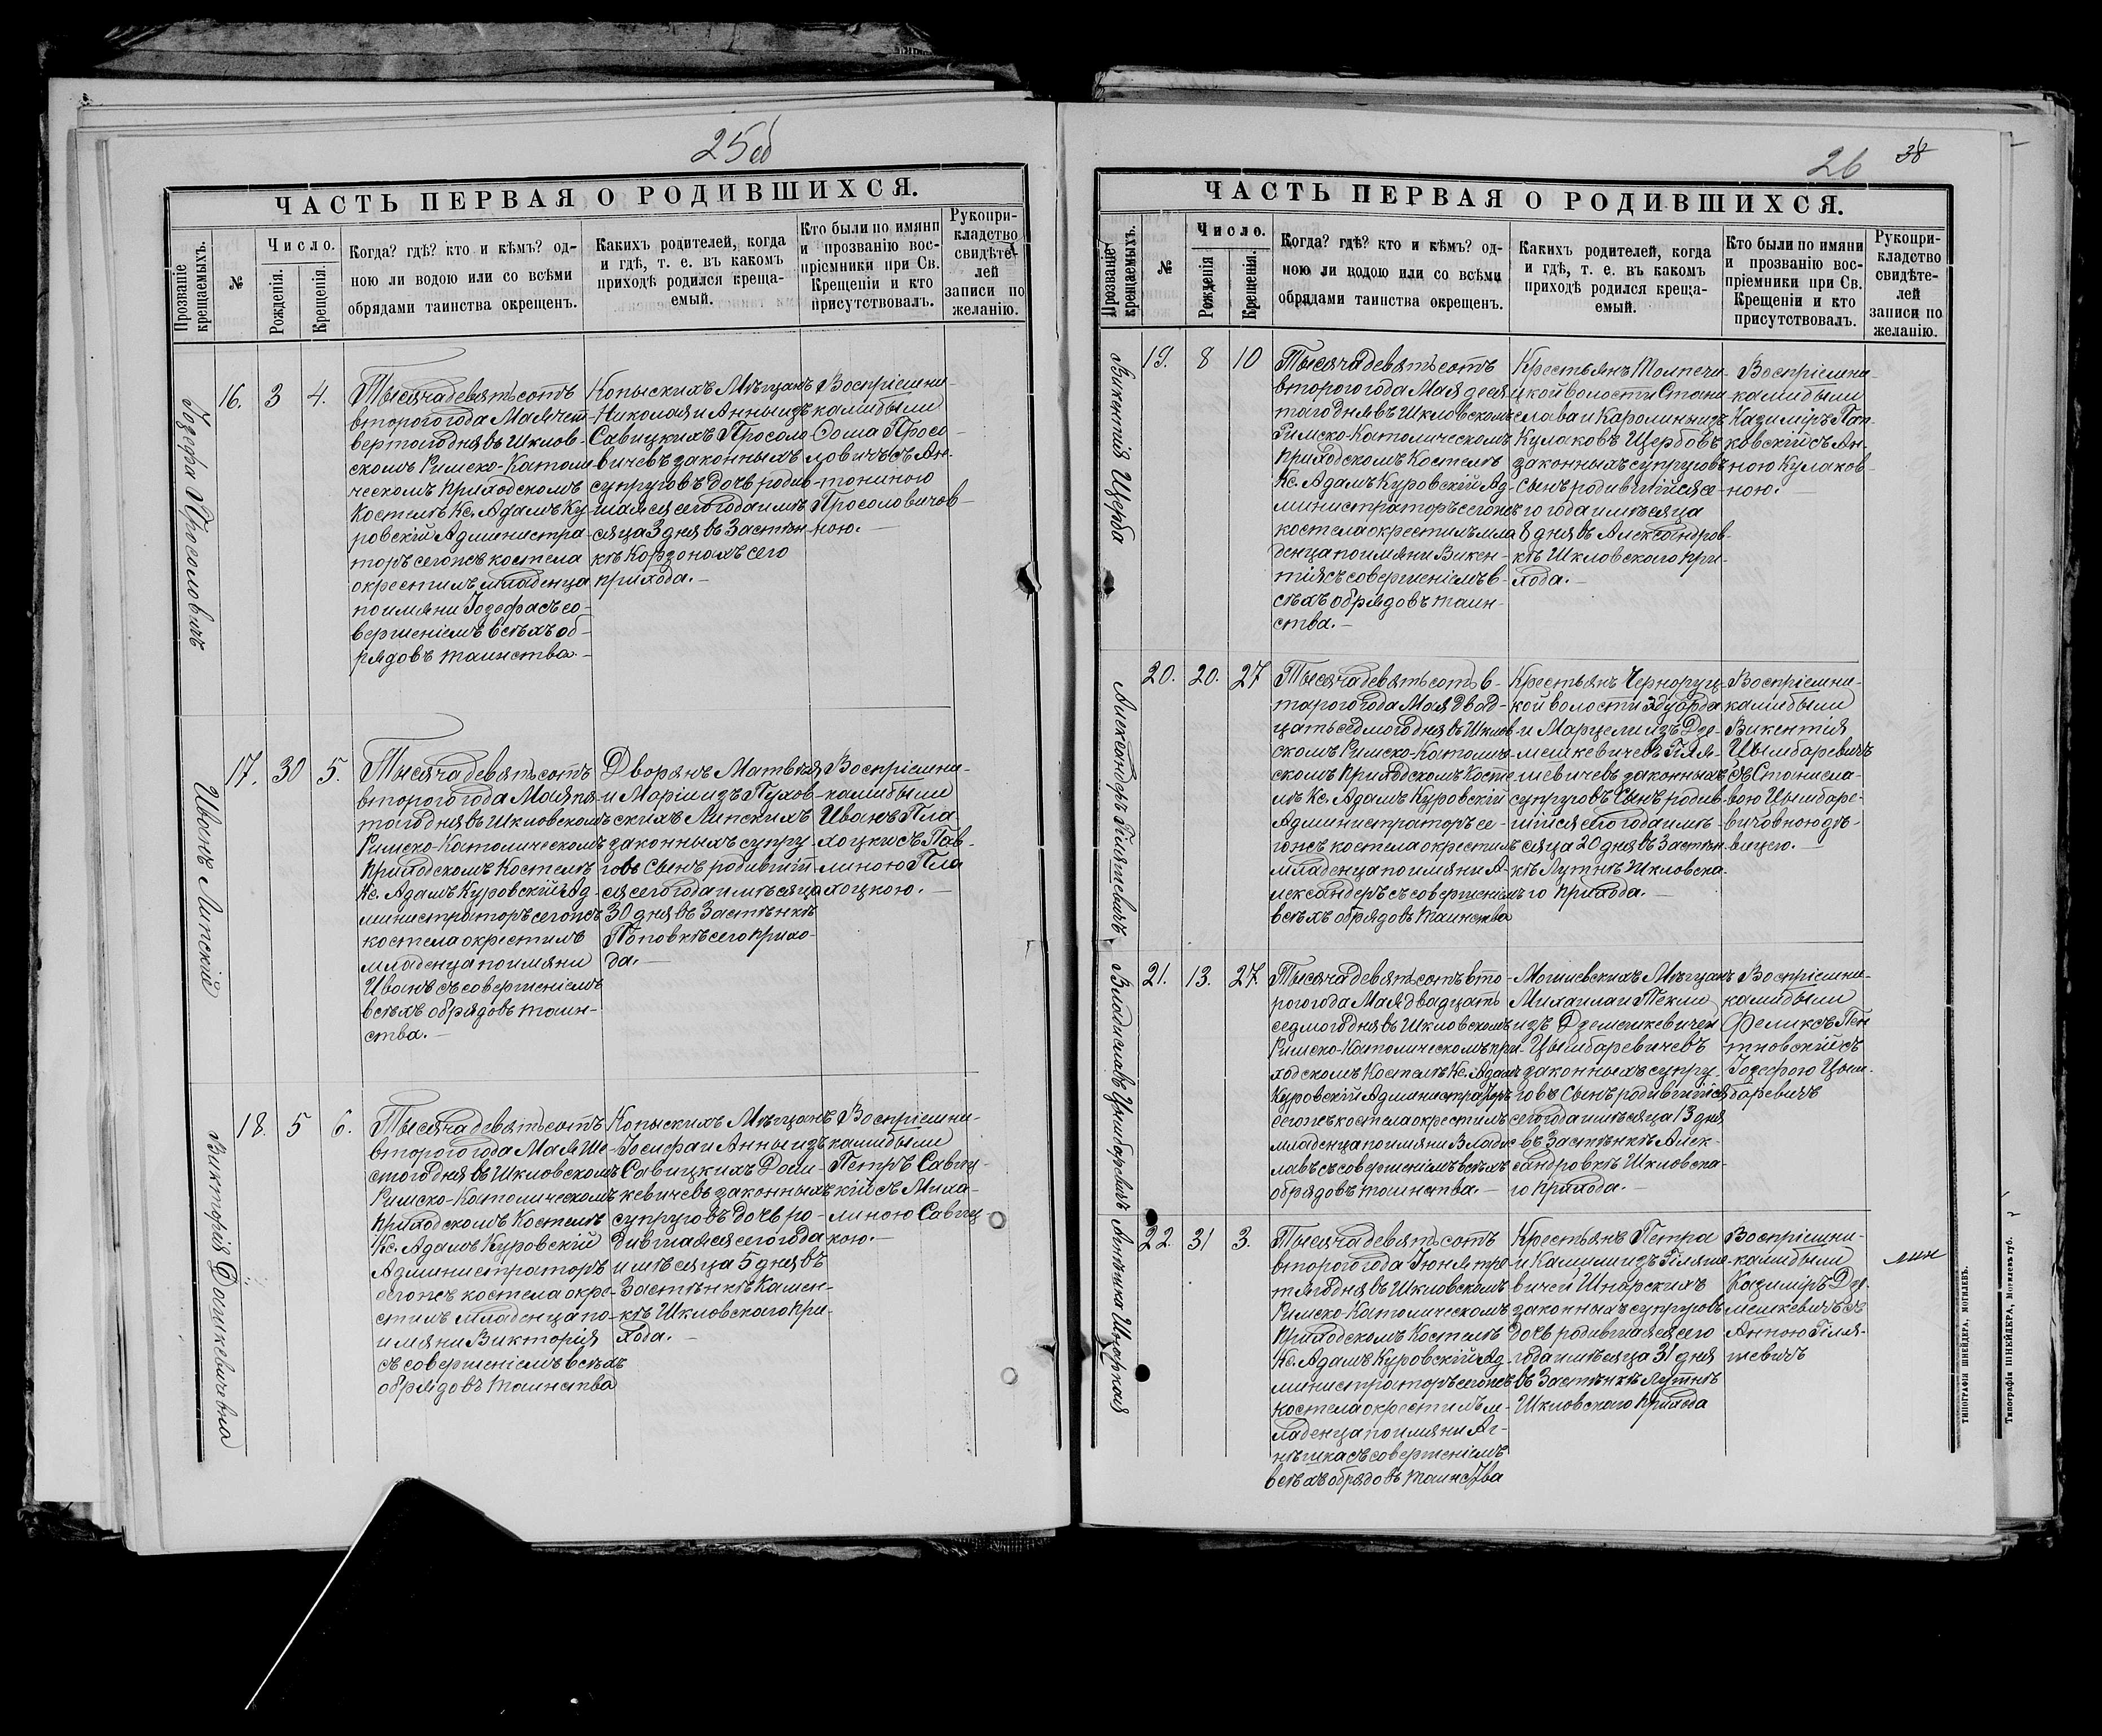 25об
ЧАСТЬ ПЕРВАЯ О РОДИВШИХСЯ.
Прозваніе крещаемыхъ.
№
Число.
Рожденія.
Крещенія.
Когда? гдѣ? кто и кѣмъ? од-
ною ли водою или со всѣми
обрядами таинства окрещенъ.
Какихъ родителей, когда
и гдѣ, т. е. въ какомъ
приходѣ родился креща-
емый.
Кто были по имяни
и прозванію вос-
пріемники при Св.
Крещеніи и кто
присутствовалъ.
Рукопри-
кладство
свидѣте-
лей
записи по
желанію.
Іозефа Просоловичъ
16. 3 4.
Тысяча девятьсотъ
второго года Мая чет-
вертого дня въ Шклов-
скомъ Римско-Католи
ческомъ приходскомъ
костелѣ Кс. Адамъ Ку-
ровскій Администра-
торъ сегожъ костела
окрестилъ младенца
по имяни Іозефа съ со-
вершеніемъ всѣхъ об-
рядовъ таинства.-
Копыскихъ Мѣщанъ
Николая и Анны изъ
Савицкихъ Просоло
вичевъ законныхъ
супруговъ дочь родив-
шаяся сего года и мѣ
сяца 3 дня въ Застѣн-
кѣ Кордонахъ сего
прихода.-
Воспріемни-
ками были
Ѳома Просо-
ловичъ съ Ан-
тониною
Просоловичов-
ною.-
Иванъ Липскій
17. 30 5.
Тысяча девятьсотъ
второго года Мая пя-
того дня въ Шкловскомъ
Римско-Католическомъ
приходскомъ Костелѣ
Кс. Адамъ Куровскій Ад-
министраторъ сегожъ
костела окрестилъ
младенца по имяни
Иванъ съ совершеніемъ
всѣхъ обрядовъ таин-
ства.-
Дворянъ Матвѣя
и Маріи изъ Пухов-
скихъ Липскихъ
законныхъ супру-
говъ сынъ родившій
ся сего года и мѣсяца
30 дня въ Застѣнкѣ
Поповкѣ сего прихо-
да.-
Воспріемни-
ками были
Иванъ Пла-
хоцкій съ Пав-
линою Пла
хоцкою.-
Викторія Домкевичевна
18. 5 6.
Тысяча девятьсотъ
второго года Мая Ше-
стого дня въ Шкловскомъ
Римско-Католическомъ
приходскомъ Костелѣ
Кс. Адамъ Куровскій
Администраторъ
сегожъ костела окре-
стилъ младенца по-
имяни Викторія
съ совершеніемъ всѣхъ
обрядовъ таинства
Копыскихъ Мѣщанъ
Іосифа и Анны изъ
Савицкихъ Дом-
кевичевъ законныхъ
супруговъ дочь ро-
дившаяся сего года
и мѣсяца 5 дня въ
Застѣнкѣ Камен-
кѣ Шкловскаго при-
хода.-
Воспріемни-
ками были
Петръ Савиц-
кій съ Миха-
линою Савиц
кою.-
26 38
ЧАСТЬ ПЕРВАЯ О РОДИВШИХСЯ.
Прозваніе крещаемыхъ.
№
Число.
Рожденія
Крещенія.
Когда? гдѣ? кто и кѣмъ? од-
ною ли водою или со всѣми
обрядами таинства окрещенъ.
Какихъ родителей, когда
и гдѣ, т. е. въ какомъ
приходѣ родился креща-
емый.
Кто были по имяни
и прозванію вос-
пріемники при Св.
Крещеніи и кто
присутствовалъ.
Рукопри-
кладство
свидѣте-
лей
записи по
желанію.
Викентій Щерба
19. 8 10
Тысяча девятьсотъ
второго года Мая деся
таго дня въ Шкловскомъ
Римско-Католическомъ
приходскомъ Костелѣ
Кс. Адамъ Куровскій Ад-
министраторъ сегожъ
костела окрестилъ мла
денца по имяни Викен-
тія съ совершеніемъ в-
сѣхъ обрядовъ таин-
ства.-
Крестьянъ Толпечи-
цкой волости Стани-
слава и Каролины изъ
Кулаковъ Щербовъ
законныхъ супруговъ
сынъ родившійся се-
го года и мѣсяца
8 дня въ Александров-
кѣ Шкловскаго при-
хода.-
Воспріемни-
ками были
Казиміръ Пап-
ковскій съ Ан-
ною Кулаков-
ною.-
Александръ Гілятевичъ
20. 20. 27
Тысяча девятьсотъ в-
тораго года Мая двад-
цать седмого дня въ Шклов-
скомъ Римско-Католи-
скомъ приходскомъ Косте
лѣ Кс. Адамъ Куровскій
Администраторъ се-
гожъ костела окрестилъ
младенца по имяни А-
лександеръ съ совершеніемъ
всѣхъ обрядовъ таинства
Крестьянъ Черноруц-
кой волости Эдуарда
и Марцели изъ Дзе-
мешкевичевъ Гіля-
шевичевъ законныхъ
супруговъ Сынъ родив-
шійся сего года и мѣ-
сяца 20 дня въ Застѣн-
кѣ Лутнѣ Шкловска-
го прихода.-
Воспріемни-
ками были
Викентія
Цымбаревичъ
съ Станисла-
вою Цымбаре-
вичовною дѣ-
вицею.-
Владиславъ Цымбаревичъ
21. 13. 27.
Тысяча девятьсотъ вто-
рого года Мая двадцать
седмого дня въ Шкловскомъ
Римско-Католическомъ при-
ходскомъ Костелѣ Кс. Адамъ
Куровскій Администраторъ
сегожъ костела окрестилъ
младенца по имяни Владис
лавъ съ совершеніемъ всѣхъ
обрядовъ таинства.-
Могилевскихъ Мѣщанъ
Михаила и Текли
изъ Дземешкевичей
Цымбаревичевъ
законныхъ супру-
говъ Сынъ родившійся
сего года и мѣсяца 13 дня
въ Застѣнкѣ Алек-
сандровкѣ Шкловска-
го прихода.-
Воспріемни-
ками были
Феликсъ Пен
тковскій съ
Іозефою Цым-
баревичъ
Агнѣшка Шнарская
22. 31 3.
Тысяча девятьсотъ
второго года Іюня тре
тяго дня въ Шкловскомъ
Римско-Католическомъ
приходскомъ Костелѣ
Кс. Адамъ Куровскій Ад-
министраторъ сегожъ
костела окрестилъ м-
ладенца по имяни Аг-
нѣшка съ совершеніемъ
всѣхъ обрядовъ таинства
Крестьянъ Петра
и Камили изъ Гіляше-
вичей Шнарскихъ
законныхъ супруговъ
дочь родившаяся сего
года и мѣсяца 31 дня
въ Застѣнкѣ Лутнѣ
Шкловскаго прихода
Воспріемни-
ками были
Казиміръ Дзе-
мешкевичъ съ
Анною Гіля-
шевичъ
ТИПОГРАФІЯ ШНЕЙДЕРА, МОГИЛЕВЪ.
Типографія ШНЕЙДЕРА, Могилевъ губ.